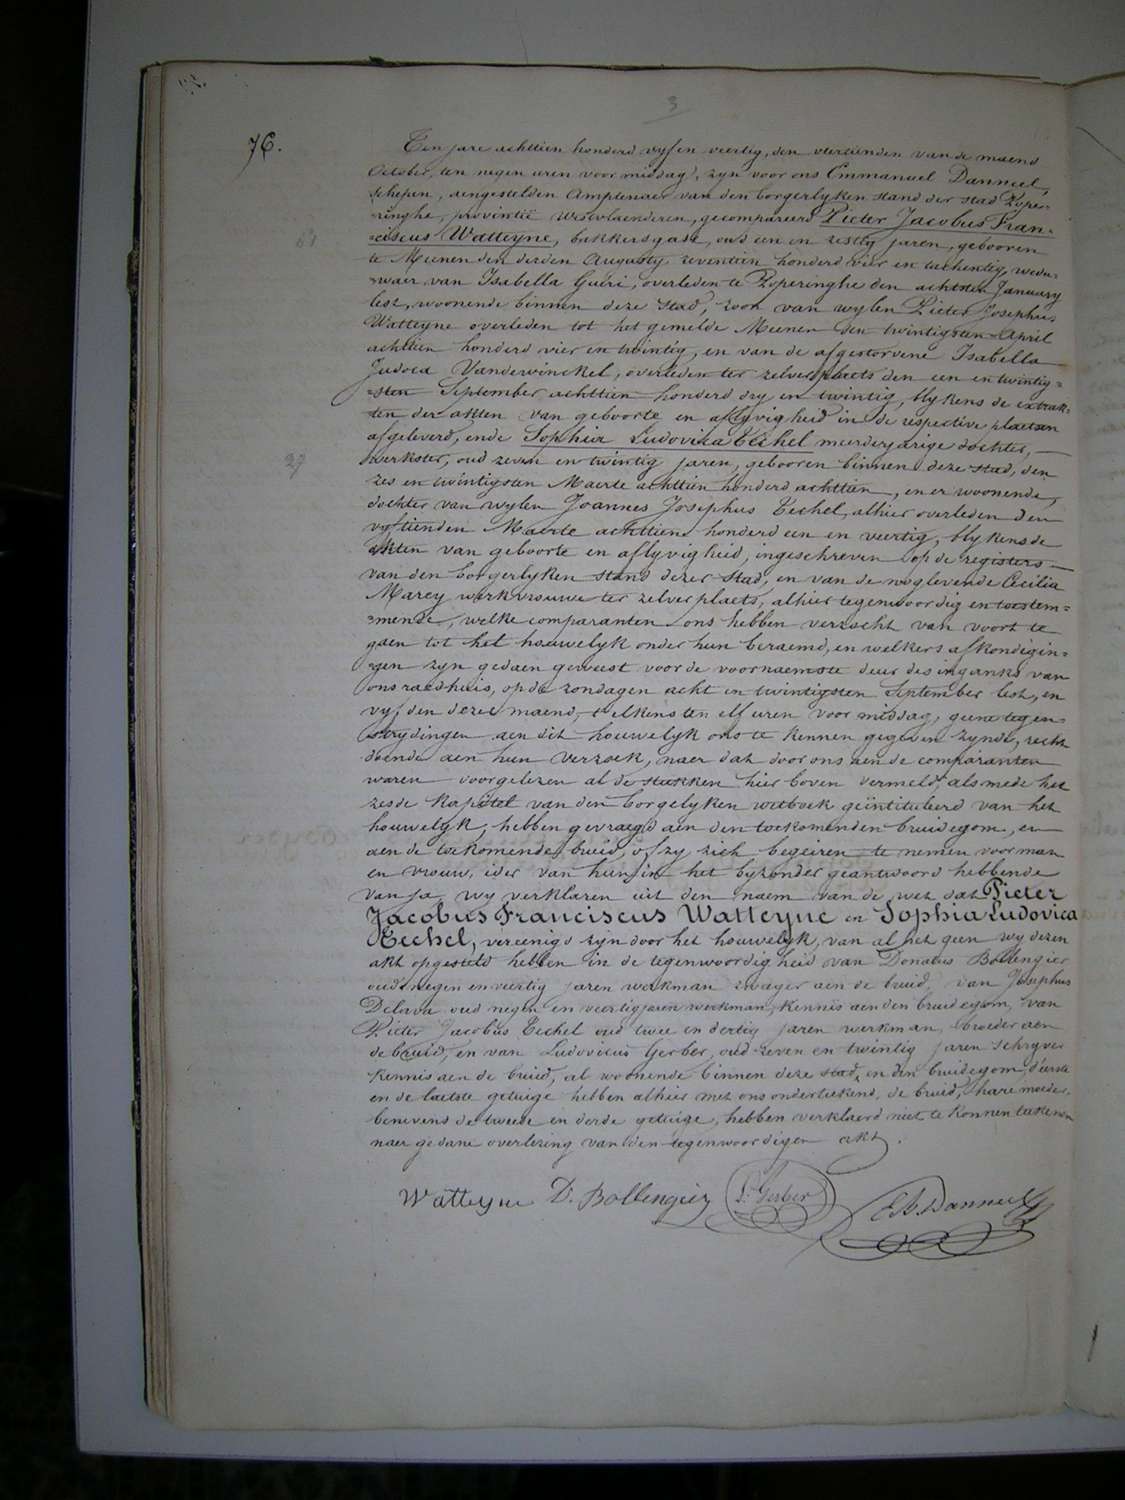 3
76.
Ten jare achttien honderd vyf en veertig, den veertienden van de maend
October, ten negen uren voormiddag, zyn voor ons Emmanuel Danneel,
schepen, aengestelden Amptenaer van den borgerlyken stand der stad Poper=
=ringhe, provintie Westvlaenderen, gecompareerd Pieter Jacobus Fran=
=ciscus Watteyne, bakkersgast, oud een en zestig jaren, gebooren
te Meenen den derden Augusty zeventien honderd vier en tachentig, wedu=
=waer van Isabella Gueri, overleden te Poperinghe den achtsten January
lest, woonende binnen deze stad, zoon van wylen Pieter Josephus
Watteyne overleden tot het gemelde Meenen den twintigsten April
achttien honderd vier en twintig, en van de afgestorvene Isabella
Judoca Vandewinckel, overleden ter zelver plaets den een en twintig=
=sten September achttien honderd dry en twintig, blykens de extrak=
=ten der akten van geboorte en aflyvigheid in de respective plaetsen
afgeleverd, ende Sophia Ludovica Techel meerderjarige dochter,
werkster, oud zeven en twintig jaren, gebooren binnen deze stad, den
zes en twintigsten Maerte achttien honderd achttien, en er woonende,
dochter van wylen Joannes Josephus Techel, alhier overleden den
vyftienden Maerte achttien honderd een en veertig, blykens de
akten van geboorte en aflyvigheid, ingeschreven op de registers
van den borgerlyken stand dezer stad, en van de noglevende Cecilia
Marey werkvrouwe ter zelver plaets, alhier tegenwoordig en toestem=
=mende, welke comparanten ons hebben verzocht van voort te
gaen tot het houwelyk onder hun beraemd, en welkers afkondigin=
=gen zyn gedaen geweest voor de voornaemste deur des inganks van
ons raedhuis, op de zondagen acht en twintigsten September lest, en
vyfden dezer maend, t'elkens ten elf uren voormiddag, geene tegen
strydingen aen dit houwelyk ons te kennen gegeven zynde, recht
doende aen hun verzoek, naer dat door ons aen de comparanten
waren voorgelezen al de stukken hier boven vermeld, alsmede het
zesde kapitel van den borgelyken wetboek geïntituleerd van het
houwelyk, hebben gevraegd aen den toekomenden bruidegom, en
aen de toekomende bruid, of zy zich begeiren te nemen voor man
en vrouw, ider van hun in het byzonder geantwoord hebbende
van ja, wy verklaren uit den naem van de wet dat Pieter
Jacobus Franciscus Watteyne en Sophia Ludovica
Techel, vereenigd zyn door het houwelyk, van al het geen wy dezen
akt opgesteld hebben in de tegenwoordigheid van Donatus Bollengier
oud negen en veertig jaren werkman zwager aen de bruid, van Josephus
Delava oud negen en veertig jaren werkman, kennis aen den bruidegom, van
Pieter Jacobus Techel oud twee en dertig jaren werkman, broeder aen
de bruid, en van Ludovicus Gerber, oud zeven en twintig jaren schryver
kennis aen de bruid, al woonende binnen deze stad, en den bruidegom, d'eerste
en de laetste getuige hebben alhier met ons onderteekend, de bruid, hare moeder,
benevens de tweede en derde getuige, hebben verklaerd niet te konnen teekenen
naer gedane overlezing van den tegenwoordigen akt.
Watteyne D. Bollengier L. Gerber Danneel